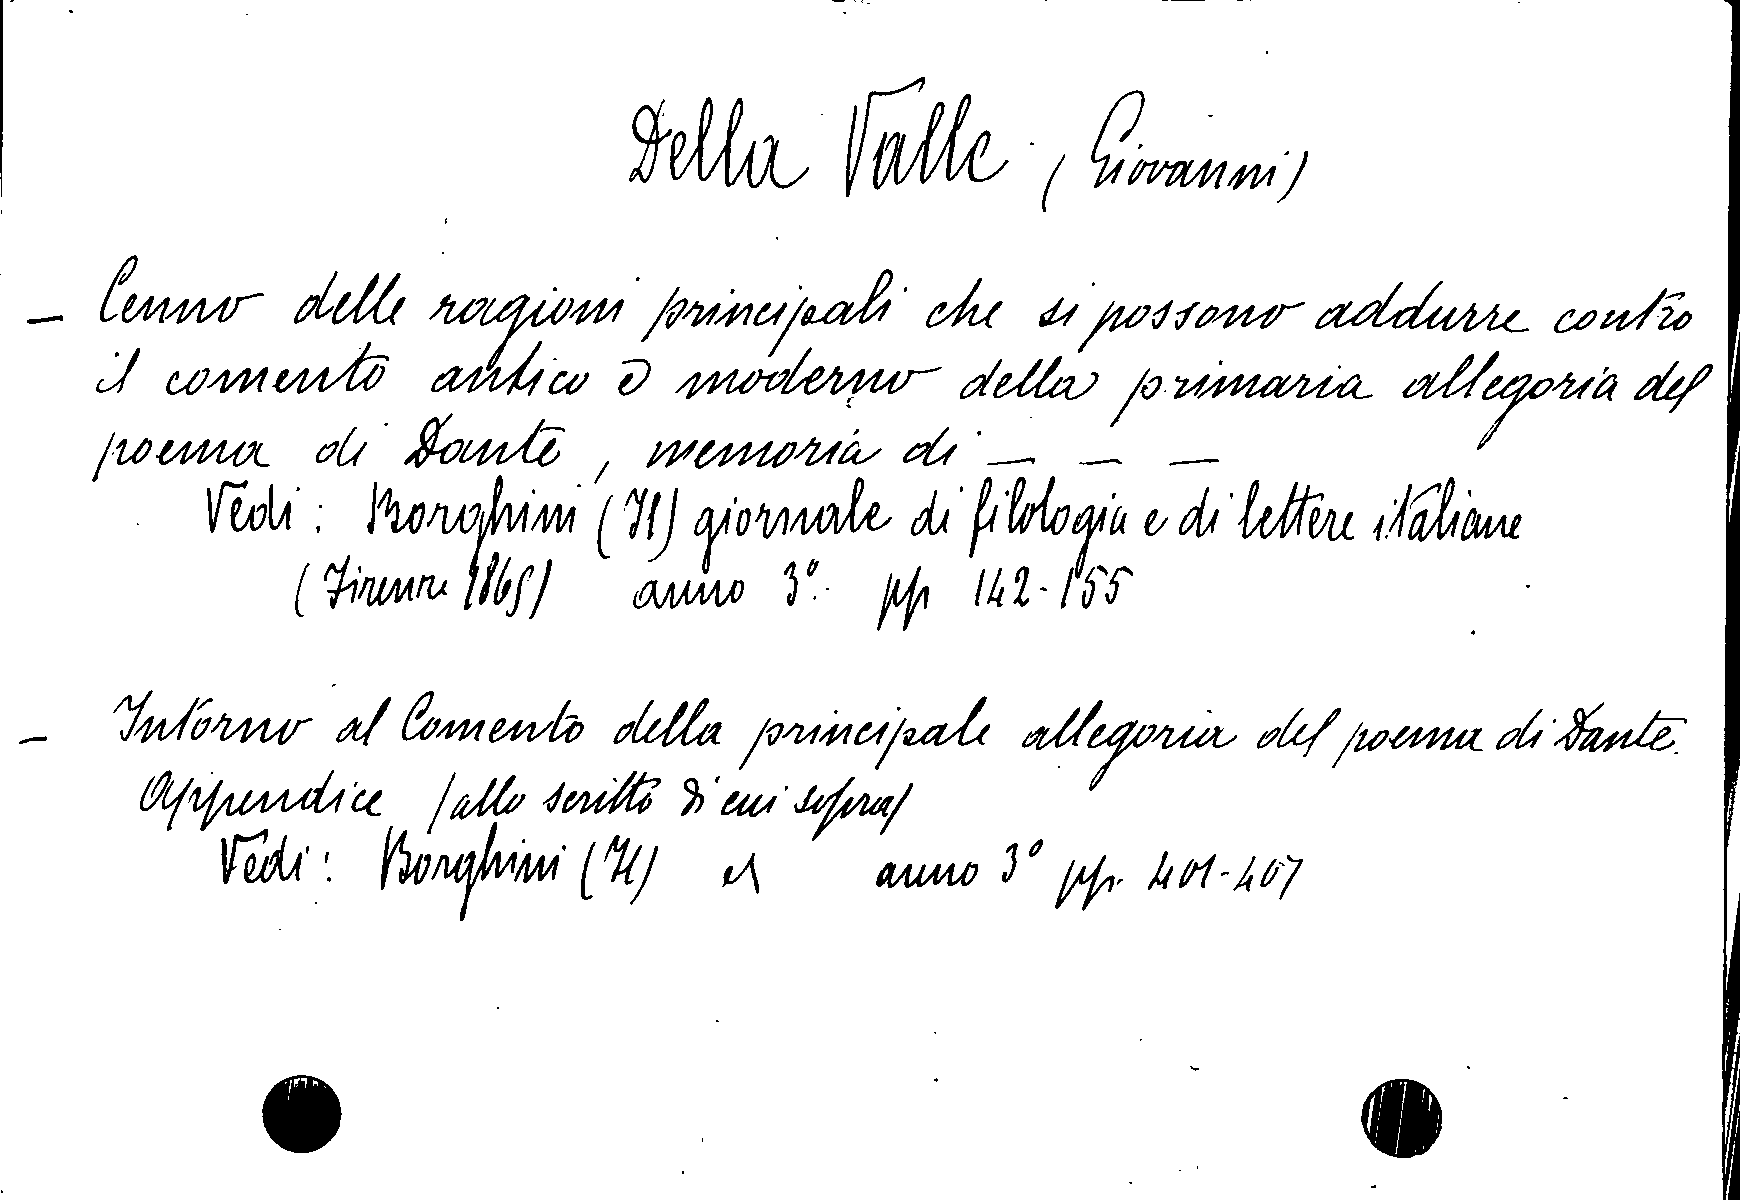 Della Valle (Giovanni)
— Cenno delle ragioni principali che si possono addurre contro
il comento antico e moderno della primaria allegoria del
poema di Dante, memoria di — — —
Vedi: Borghini (Il) giornale di filologia e di lettere italiane
(Firenze 1865) anno 3° pp 142-155
— Intorno al Comento della principale allegoria del poema di Dante.
Appendice (allo scritto di cui sopra)
Vedi: Borghini (Il) anno 3° pp. 401-407